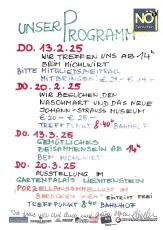 UNSER PROGRAMM
NÖ
DO. 13.2.25
WIR TREFFEN UNS AB 14h
BEIM MICHLWIRT
BITTE MITGLIEDSBEITRAG
MITBRINGEN
DO. 20.2.25
WIR BESUCHEN DEN
NASCHMART UND DAS NEUE
JOHANN-STRAUSS MUSEUM
TREFFPUNKT 8:40h BAHNHOF
DO. 13.3.25
GEMÜTLICHES
BEISAMMENSEIN AB 14h
BEI MICHLWIRT
DO. 20.3.25
AUSSTELLUNG IM
GARTENPALAIS LIECHTENSTEIN
PORZELLANSAMMLUNG IM
BAROCKEN WIEN EINTRITT FREI
TREFFPUNKT 8:40h BAHNHOF